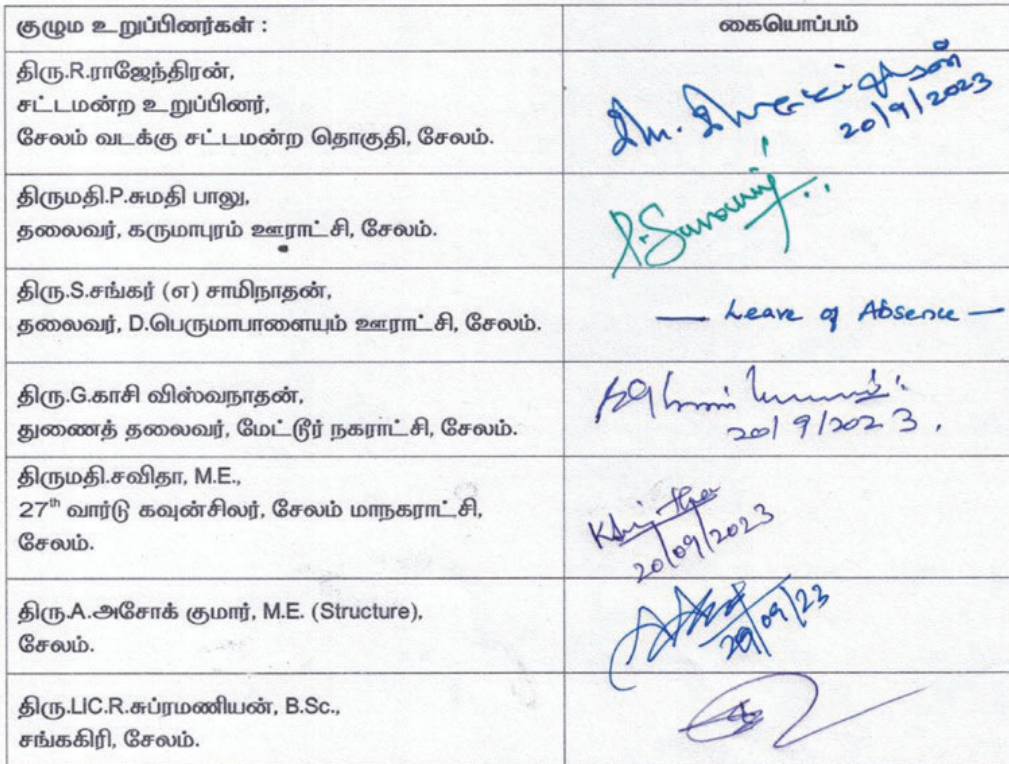 குழும உறுப்பினர்கள் :
கையொப்பம்
திரு.R.ராஜேந்திரன்,
சட்டமன்ற உறுப்பினர்,
சேலம் வடக்கு சட்டமன்ற தொகுதி, சேலம்.
20/9/2023
திருமதி.P.சுமதி பாலு,
தலைவர், கருமாபுரம் ஊராட்சி, சேலம்.
திரு.S.சங்கர் (எ) சாமிநாதன்,
தலைவர், D.பெருமாபாளையும் ஊராட்சி, சேலம்.
— Leave of Absence —
திரு.G.காசி விஸ்வநாதன்,
துணைத் தலைவர், மேட்டூர் நகராட்சி, சேலம்.
20/9/2023.
திருமதி.சவிதா, M.E.,
27th வார்டு கவுன்சிலர், சேலம் மாநகராட்சி,
சேலம்.
20/09/2023
திரு.A.அசோக் குமார், M.E. (Structure),
சேலம்.
20/09/23
திரு.LIC.R.சுப்ரமணியன், B.Sc.,
சங்ககிரி, சேலம்.